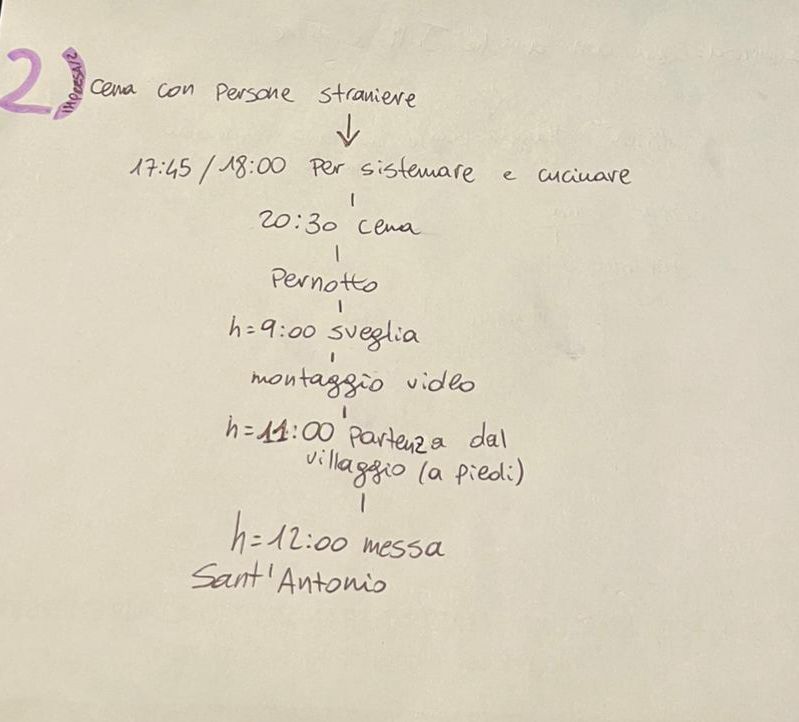 2) IMPRESA/2 cena con persone straniere
17:45 / 18:00 per sistemare e cucinare
20:30 cena
Pernotto
h=9:00 sveglia
montaggio video
h=11:00 partenza dal
villaggio (a piedi)
h=12:00 messa
Sant'Antonio